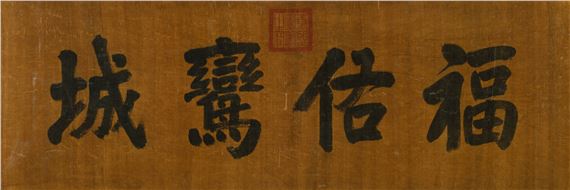 福佑鸞城